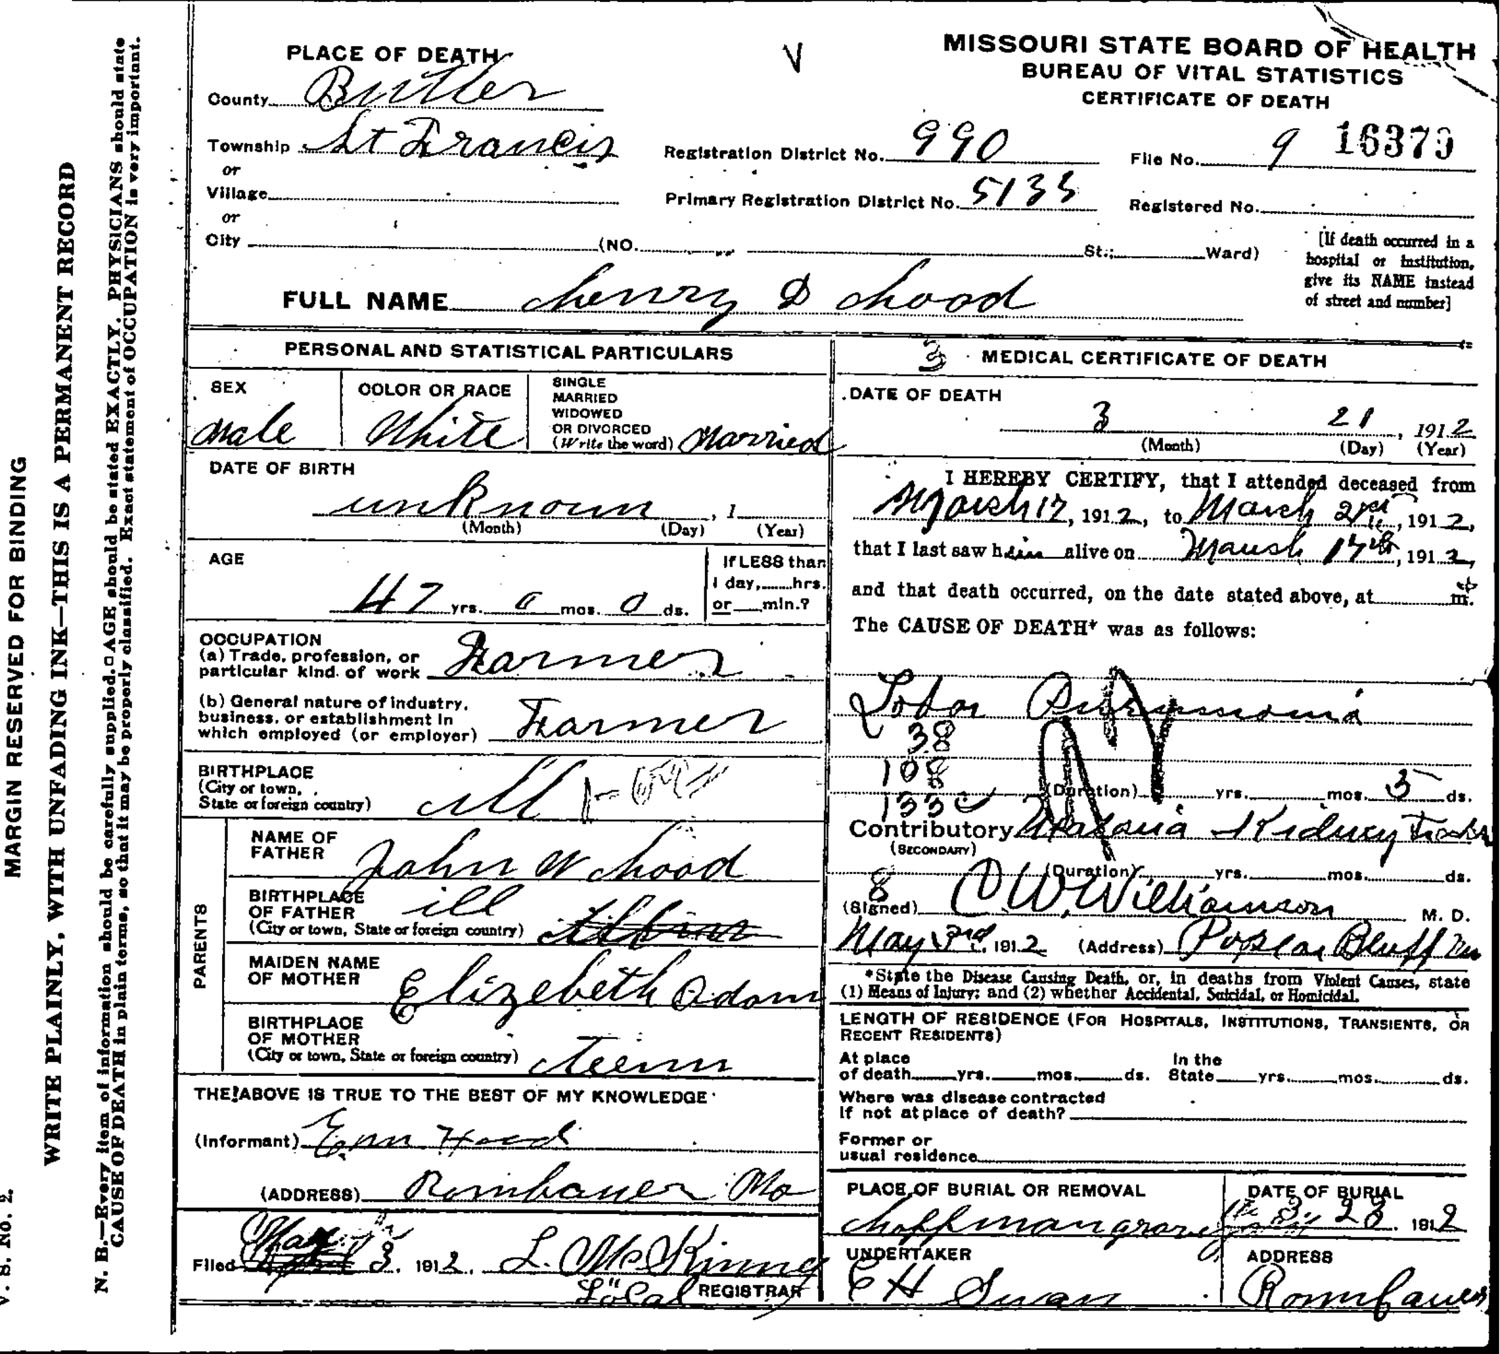 MISSOURI STATE BOARD OF HEALTH
BUREAU OF VITAL STATISTICS
CERTIFICATE OF DEATH
PLACE OF DEATH
County Butler
Township St Francis
or
Village
or
City (NO. St.; Ward)
Registration District No. 990
File No. 9 16379
Primary Registration District No. 5133
Registered No.
[If death occurred in a
hospital or institution,
give its NAME instead
of street and number]
FULL NAME Henry D Hood
PERSONAL AND STATISTICAL PARTICULARS
SEX
Male
COLOR OR RACE
White
SINGLE
MARRIED
WIDOWED
OR DIVORCED
(Write the word) Married
DATE OF BIRTH
unknown , 1
(Month) (Day) (Year)
AGE
47 yrs. 0 mos. 0 ds.
If LESS than
1 day, hrs.
or min.?
OCCUPATION
(a) Trade, profession, or
particular kind of work Farmer
(b) General nature of industry,
business, or establishment in
which employed (or employer) Farmer
BIRTHPLACE
(City or town,
State or foreign country) ill
PARENTS
NAME OF
FATHER John W Hood
BIRTHPLACE
OF FATHER ill
(City or town, State or foreign country)
MAIDEN NAME
OF MOTHER Elizebeth Adams
BIRTHPLACE
OF MOTHER
(City or town, State or foreign country) Teenn
THE ABOVE IS TRUE TO THE BEST OF MY KNOWLEDGE
(Informant) Hood
(ADDRESS) Rombauer Mo
Filed May 3, 1912, L. McKinney
Local REGISTRAR
3 MEDICAL CERTIFICATE OF DEATH
DATE OF DEATH
3 21, 1912
(Month) (Day) (Year)
I HEREBY CERTIFY, that I attended deceased from
March 17, 1912, to March 21st, 1912,
that I last saw him alive on March 17th, 1912,
and that death occurred, on the date stated above, at m.
The CAUSE OF DEATH* was as follows:
Lobar Pneumonia
38
108
133
(Duration) yrs. mos. 5 ds.
Contributory Malaria Kidney
(SECONDARY)
(Duration) yrs. mos. ds.
8
(Signed) C W. Williamson M. D.
May 3rd, 1912 (Address) Poplar Bluff Mo
*State the Disease Causing Death, or, in deaths from Violent Causes, state
(1) Means of Injury; and (2) whether Accidental, Suicidal, or Homicidal.
LENGTH OF RESIDENCE (FOR HOSPITALS, INSTITUTIONS, TRANSIENTS, OR
RECENT RESIDENTS)
At place
of death yrs. mos. ds.
In the
State yrs. mos. ds.
Where was disease contracted
if not at place of death?
Former or
usual residence
PLACE OF BURIAL OR REMOVAL
Hoffman grove
DATE OF BURIAL
3 23 1912
UNDERTAKER
E H Swan
ADDRESS
Rombauer
MARGIN RESERVED FOR BINDING
WRITE PLAINLY, WITH UNFADING INK—THIS IS A PERMANENT RECORD
N. B.—Every item of information should be carefully supplied. AGE should be stated EXACTLY. PHYSICIANS should state
CAUSE OF DEATH in plain terms, so that it may be properly classified. Exact statement of OCCUPATION is very important.
V. S. No. 2